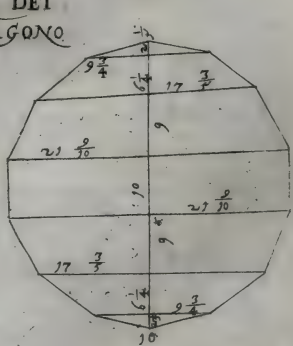 DEI
GONO
1/2
2
9 3/4
6 1/4
17 3/5
9
21 9/10
10
21 9/10
9
17 3/5
6 1/4
9 3/4
10